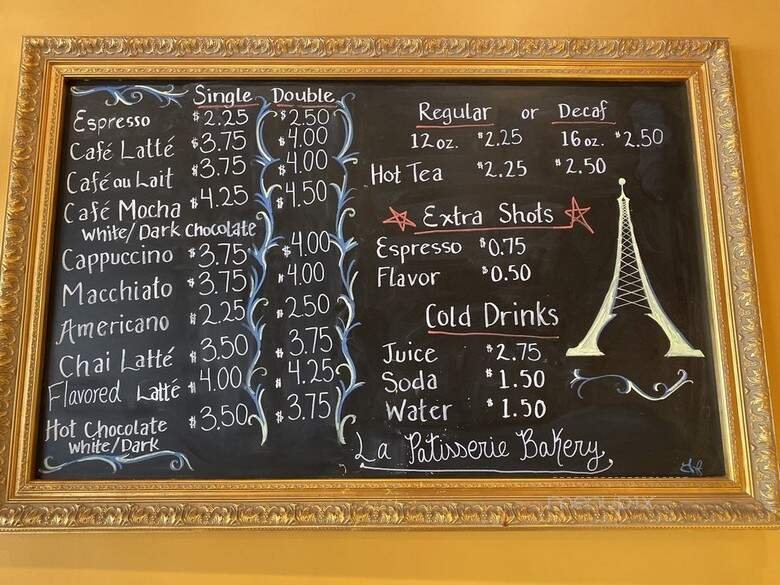 Single Double
Espresso $2.25 $2.50
Café Latté $3.75 $4.00
Café au Lait $3.75 $4.00
Café Mocha $4.25 $4.50
White/Dark Chocolate
Cappuccino $3.75 $4.00
Macchiato $3.75 $4.00
Americano $2.25 $2.50
Chai Latté $3.50 $3.75
Flavored Latté $4.00 $4.25
Hot Chocolate $3.50 $3.75
White/Dark
Regular or Decaf
12 oz. $2.25 16 oz. $2.50
Hot Tea $2.25 $2.50
Extra Shots
Espresso $0.75
Flavor $0.50
Cold Drinks
Juice $2.75
Soda $1.50
Water $1.50
La Patisserie Bakery